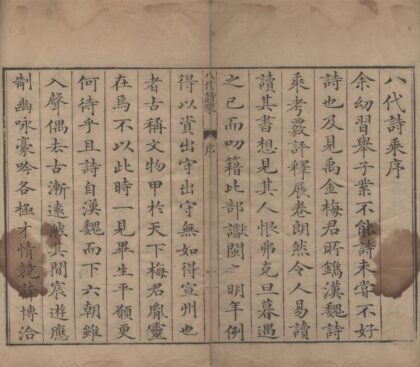 八代詩乘序
余幼習舉子業不能詩未嘗不好
詩也及見禹金梅君所鐫漢魏詩
乘考覈評釋展卷朗然令人易讀
讀其書想見其人恨弗克旦暮遇
之已而叨籍比部讞閩之明年例
八代詩乘 序
得以資出守出守無如得宣州也
者古稱文物甲於天下梅君胤靈
在焉不以此時一見畢生平願更
何待乎且詩自漢魏而下六朝雖
入聲偶去古漸遠然其間宸遊應
制幽咏豪吟各極才情競博洽